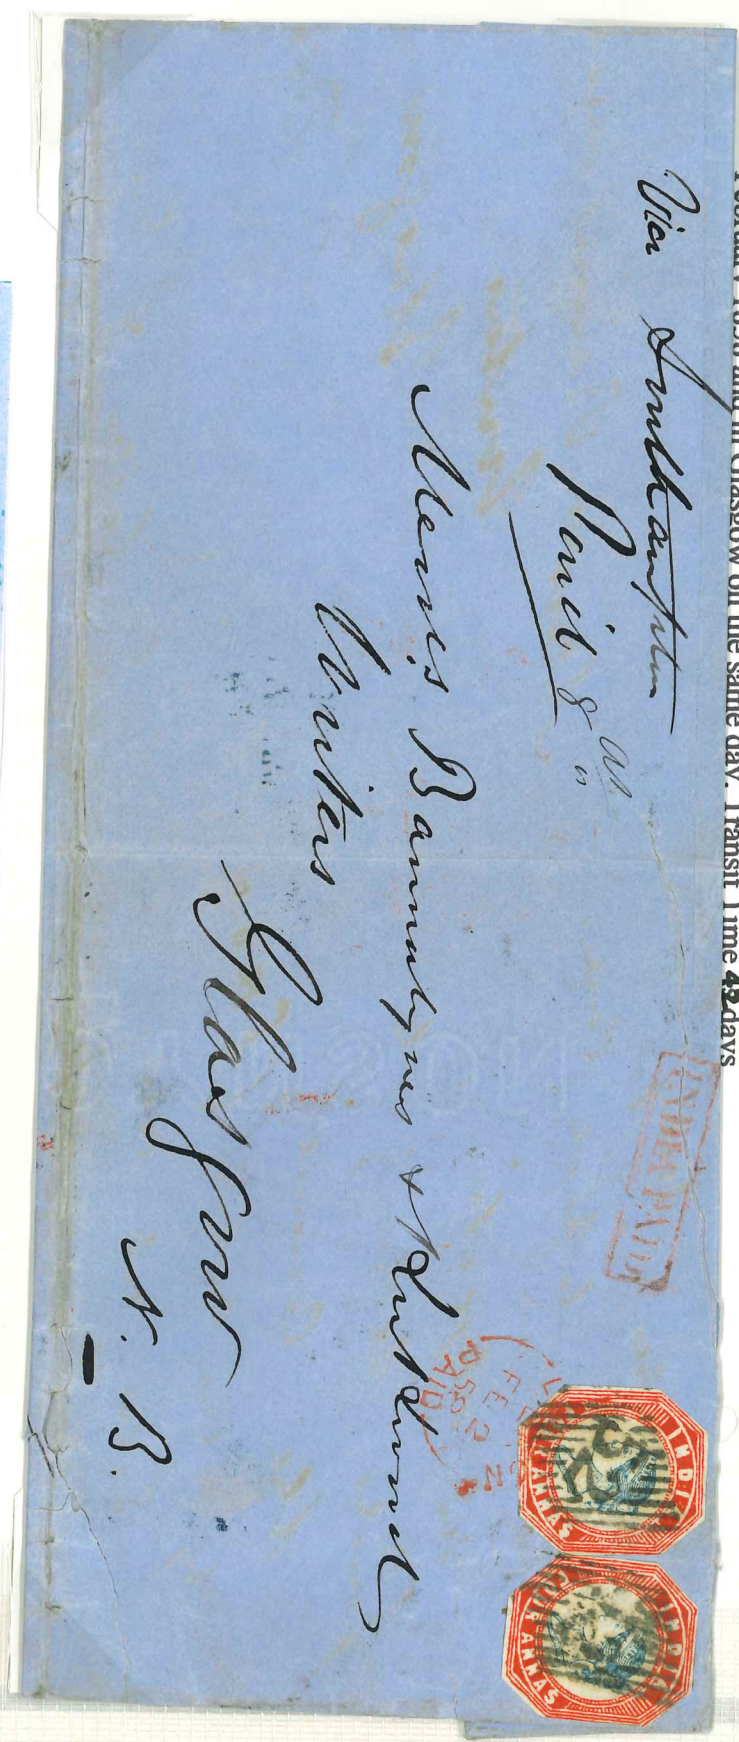 and in Glasgow on the same day. Transit Time 42 days
Via Southampton
Paid 8 as
Messrs Bannatynes & Kirkwood
Writers
Glasgow
N. B.
INDIA PAID
PAID
FE
INDIA
FOUR ANNAS
INDIA
FOUR ANNAS